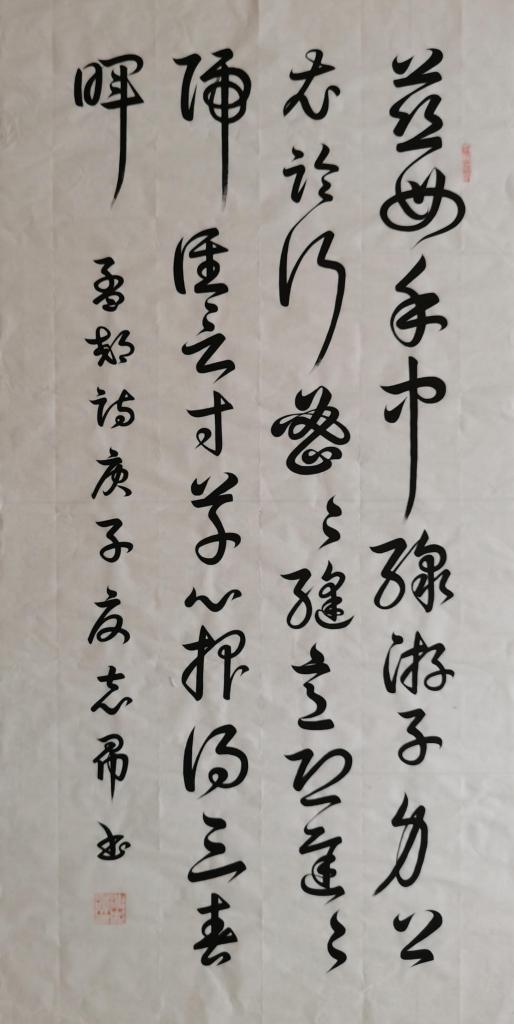 慈母手中線游子身上
衣臨行密々縫意恐遲々
歸誰言寸草心報得三春
暉 孟郊詩庚子夏志書